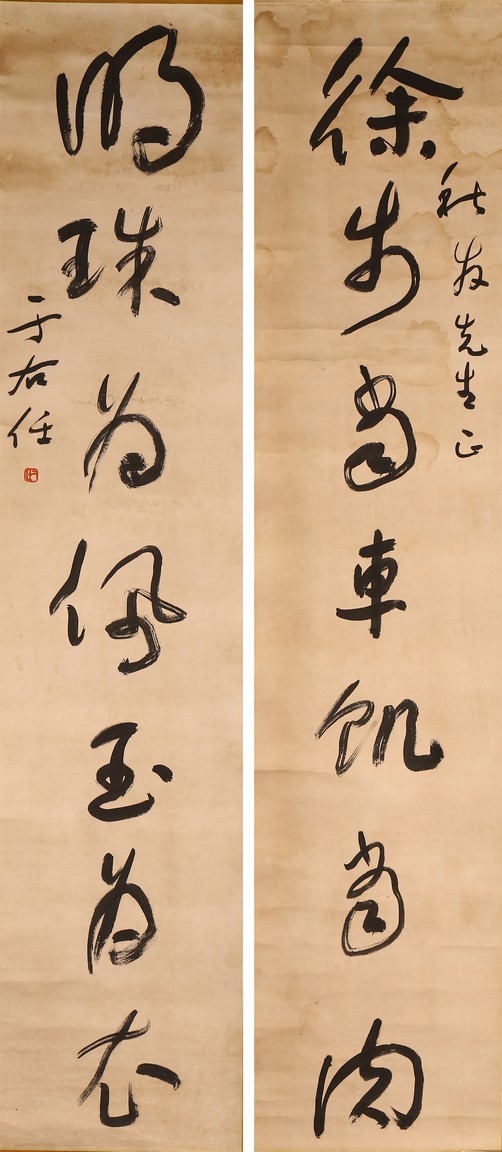 徐步當車飢當肉
秋友先生正
明珠為佩玉為衣
于右任